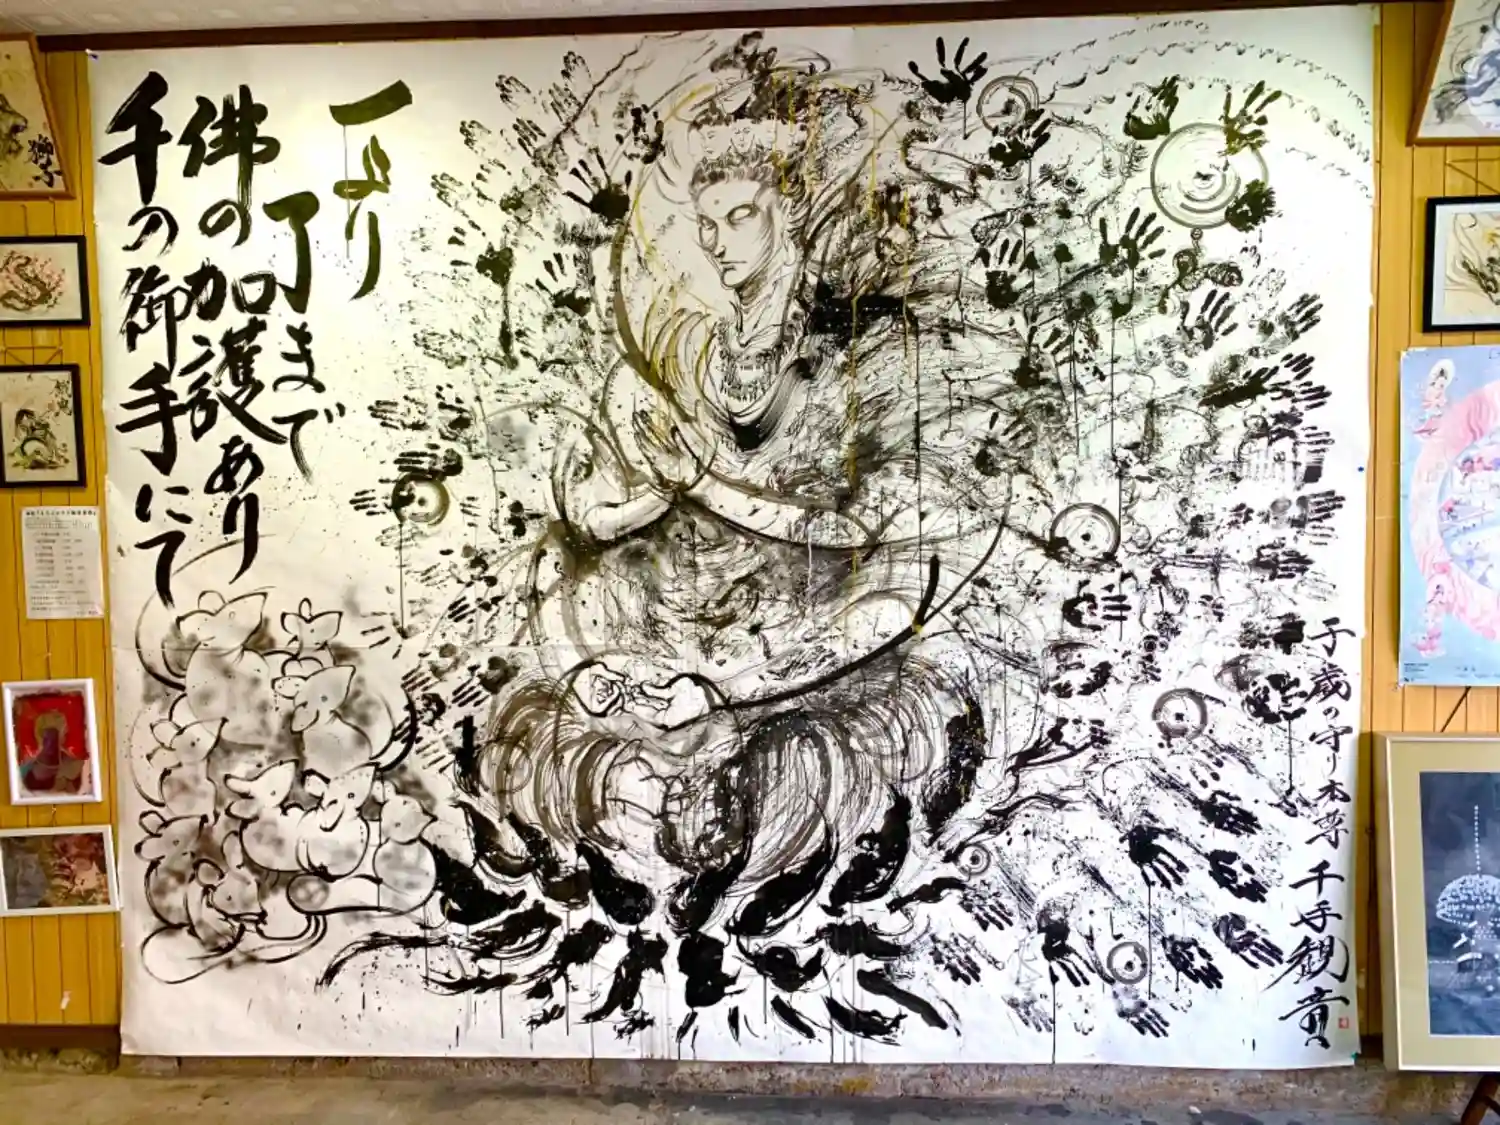 一より
了まで
佛の加護あり
千の御手にて
子歳の守り本尊
千手観音